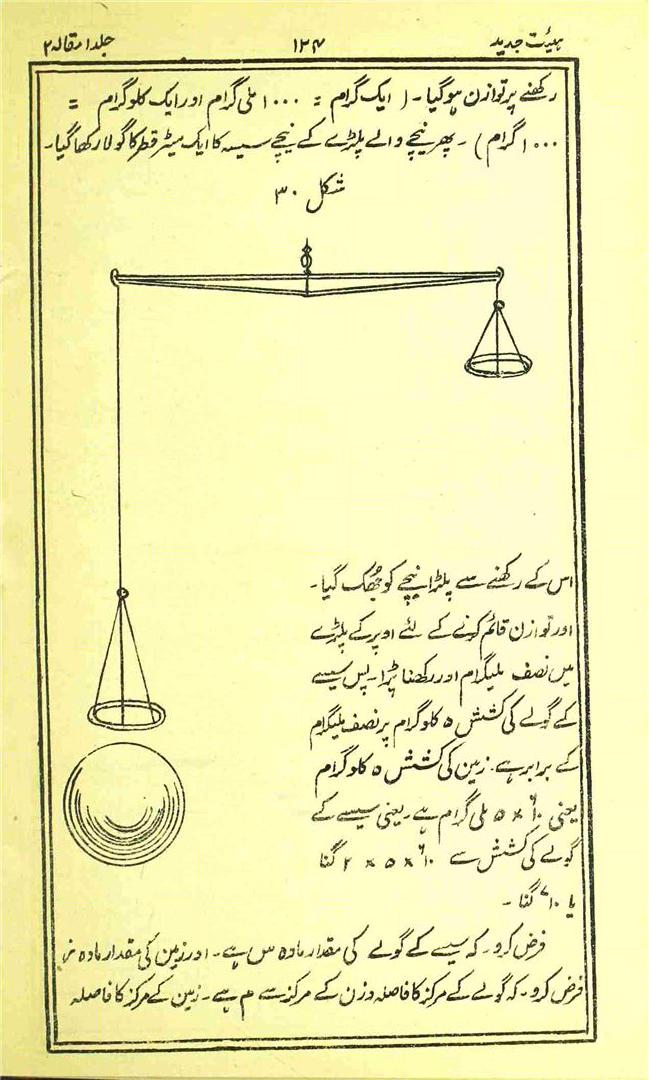 ہیئت جدید ۱۲۴ جلد ۱ مقالہ ۲
رکھنے پر توازن ہوگیا۔ ( ایک گرام = ۱۰۰۰ ملی گرام اور ایک کلوگرام =
۱۰۰۰ گرام ) ۔ پھر نیچے والے پلڑے کے نیچے سیسہ کا ایک میٹر قطر کا گولا رکھا گیا۔
شکل ۳۰
اس کے رکھنے سے پلڑا نیچے کو جُھک گیا۔
اور توازن قائم کرنے کے لئے اوپر کے پلڑے
میں نصف ملیگرام اور رکھنا پڑا۔ پس سیسے
کے گولے کی کشش ۵ کلوگرام پر نصف ملیگرام
کے برابر ہے۔ زمین کی کشش ۵ کلوگرام
یعنی ۱۰<sup>۶</sup> × ۵ ملی گرام ہے۔ یعنی سیسے کے
گولے کی کشش سے ۱۰<sup>۶</sup> × ۵ × ۲ گنا
یا ۱۰<sup>۷</sup> گنا ۔
فرض کرو۔ کہ سیسے کے گولے کی مقدار مادہ س ہے۔ اور زمین کی مقدار مادہ
فرض کرو۔ کہ گولے کے مرکز کا فاصلہ وزن کے مرکز سے م ہے۔ زمین کے مرکز کا فاصلہ